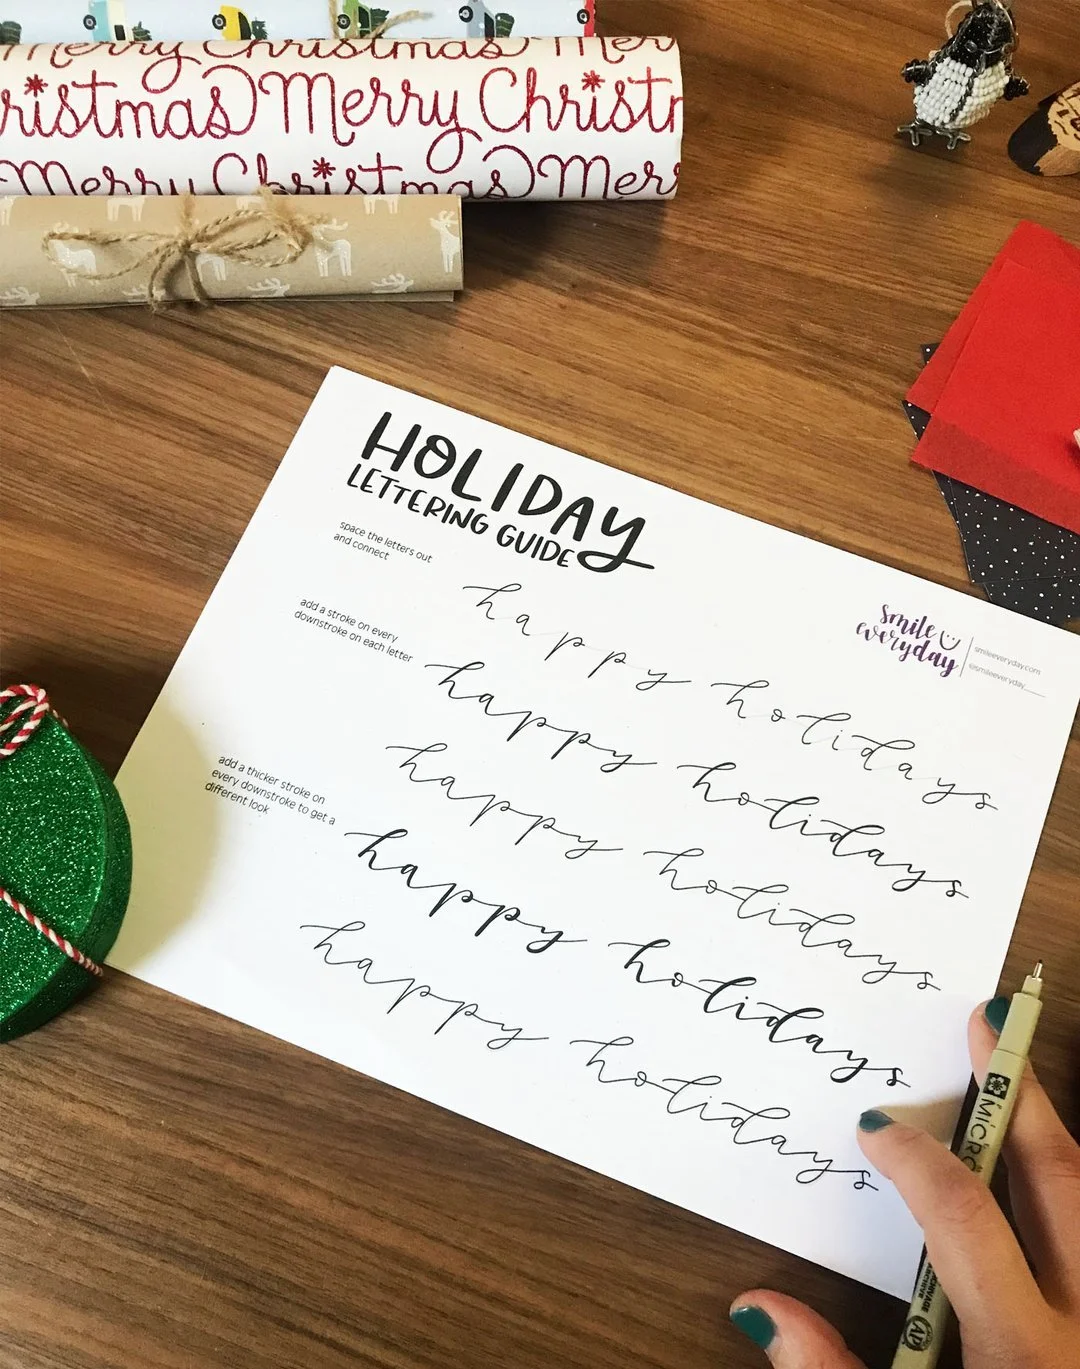 Merry Christmas Mer
ristmas Merry Christ
Merry Christmas Mer
HOLIDAY
LETTERING GUIDE
space the letters out
and connect
smile
everyday
smileeveryday.com
@smileeveryday___
happy holidays
add a stroke on every
downstroke on each letter
happy holidays
happy holidays
add a thicker stroke on
every downstroke to get a
different look
happy holidays
happy holidays
MICRO
ARCHIVAL
AP